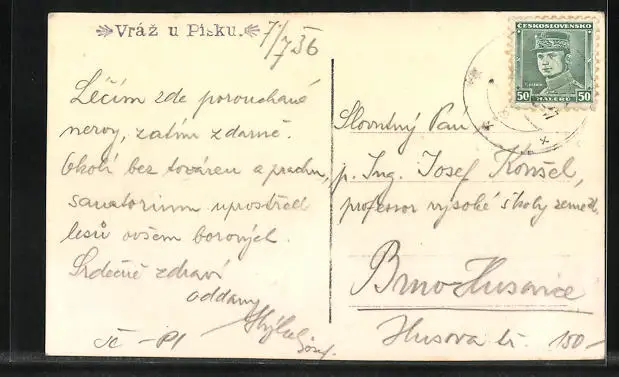 Vráž u Písku.
7/7 36
Léčím zde porouchané
nervy, zatím zdárně.
Okolí bez továren a prachu,
sanatorium uprostřed
lesů ovšem borových.
Srdečně zdraví
oddaný
Josef.
ČESKOSLOVENSKO
50 HALÉŘŮ 50
Slovutný Pan
p. Ing. Josef Konšel,
profesor vysoké školy zeměd.
Brno-Husovice
Husova tř.
150-